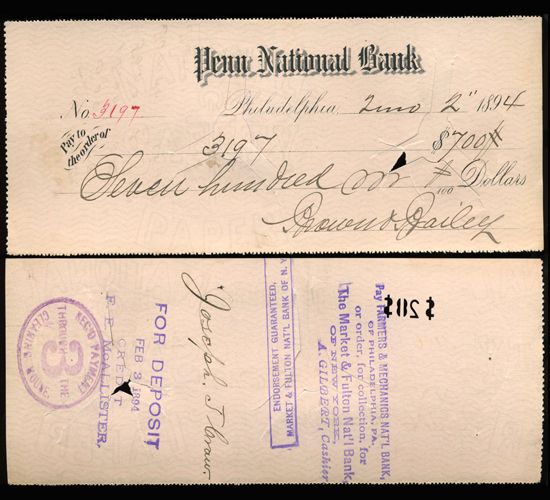 Penn National Bank
No. 3197 Philadelphia, 2mo 2" 1894
Pay to
the order of
3197 $700
Seven hundred 100 Dollars
Brown & Bailey
REC'D PAYMENT
THROUGH THE
3
CLEARING HOUSE
FOR DEPOSIT
FEB 3 1894
CREDIT
F. E. McALLISTER,
Joseph. J.
ENDORSEMENT GUARANTEED,
MARKET & FULTON NAT'L BANK OF N.Y.
Pay FARMERS & MECHANICS NAT'L BANK,
OF PHILADELPHIA, PA.
or order, for collection, for
The Market & Fulton Nat'l Bank,
OF NEW YORK,
A. GILBERT, Cashier